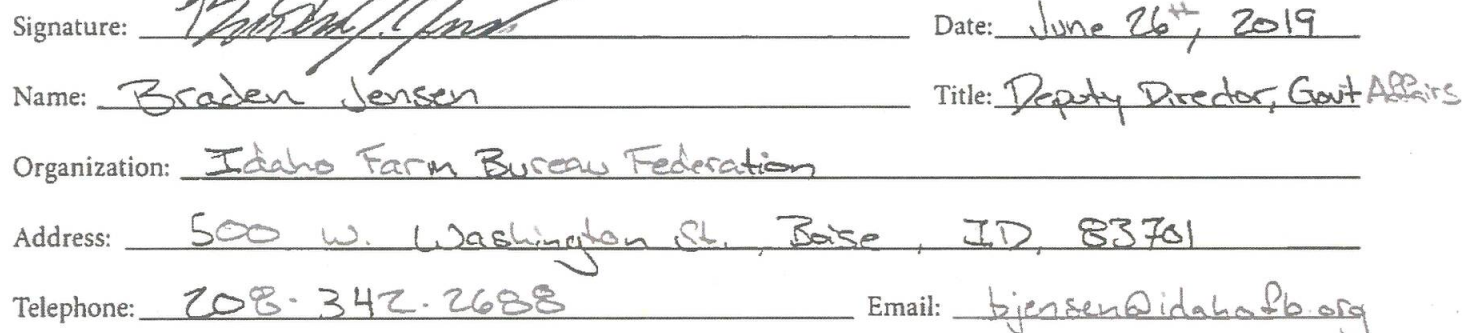 Signature: Date: June 26th, 2019
Name: Braden Jensen Title: Deputy Director, Govt Affairs
Organization: Idaho Farm Bureau Federation
Address: 500 W. Washington St., Boise, ID, 83701
Telephone: 208-342-2688 Email: bjensen@idahofb.org